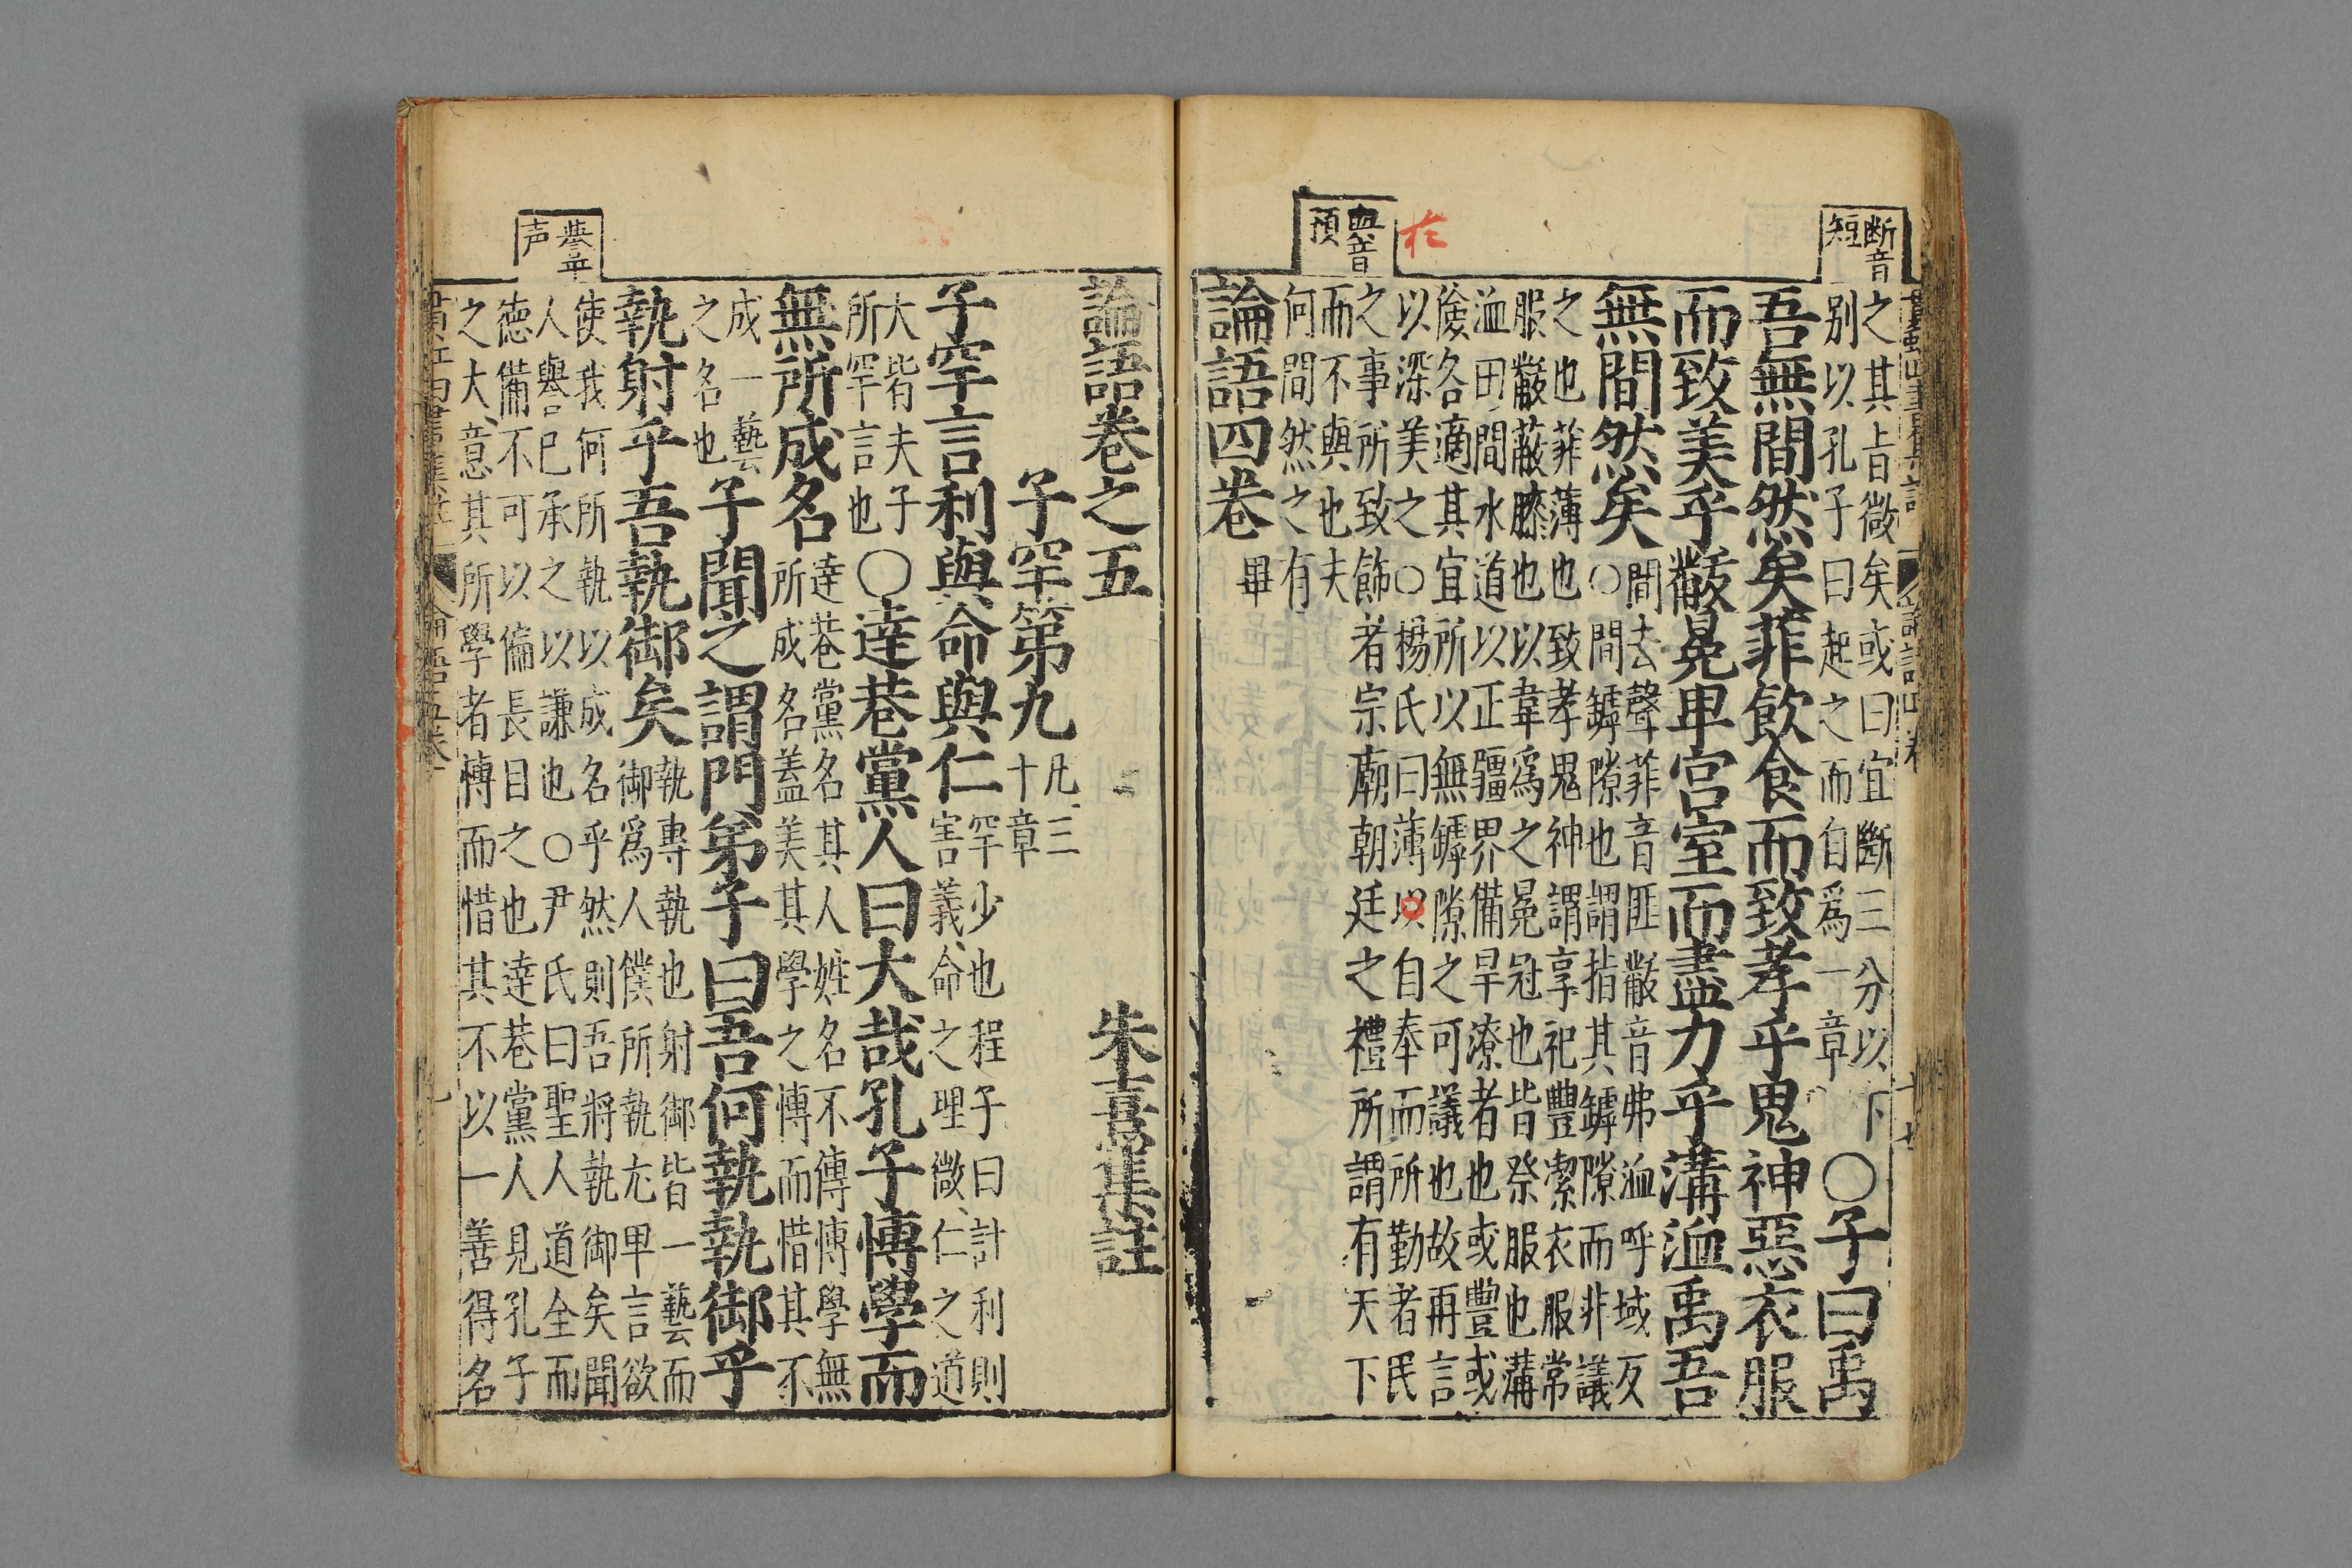 断音
短
之其旨微矣或曰宜斷三分以下
别以孔子曰起之而自爲一章
○子曰禹
吾無間然矣菲飲食而致孝乎鬼神惡衣服
而致美乎黻冕卑宮室而盡力乎溝洫禹吾
無間然矣
間去聲菲音匪黻音弗洫呼域反
○間罅隙也謂指其罅隙而非議
之也菲薄也致孝鬼神謂享祀豐潔衣服常
服黻蔽膝也以韋爲之冕冠也皆祭服也溝
洫田間水道以正疆界備旱潦者也或豐或
儉各適其宜所以無罅隙之可議也故再言
於
以深美之○楊氏曰薄以自奉而所勤者民
之事所致飾者宗廟朝廷之禮所謂有天下
與音
預
而不與也夫
何間然之有
論語四卷 畢
論語卷之五 朱熹集註
子罕第九
凡三
十章
子罕言利與命與仁
罕少也程子曰計利則
害義命之理微仁之道
大皆夫子
所罕言也
○達巷黨人曰大哉孔子博學而
無所成名
達巷黨名其人姓名不傳博學無
所成名盖美其學之博而惜其不
成一藝
之名也
子聞之謂門弟子曰吾何執執御乎
執射乎吾執御矣
執專執也射御皆一藝而
御爲人僕所執尤卑言欲
舉平
声
使我何所執以成名乎然則吾將執御矣聞
人譽己承之以謙也○尹氏曰聖人道全而
德備不可以偏長目之也達巷黨人見孔子
之大意其所學者博而惜其不以一善得名